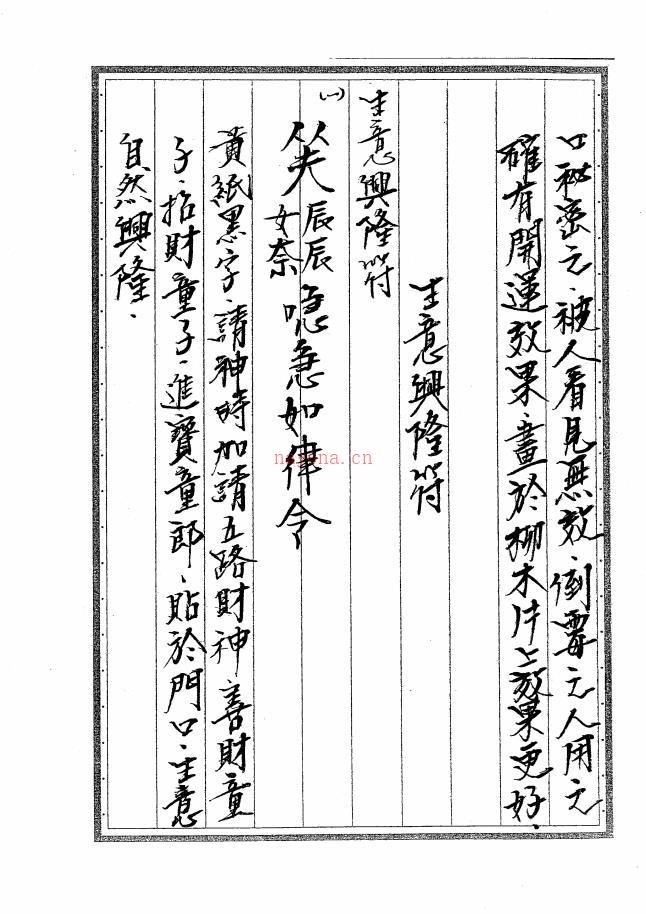 口秘密之、被人看見無效、倒霉之人用之
確有開運效果、畫於柳木片上效果更好、
生意興隆符
生意興隆符
(一)
辰辰 急如律令
女奈
黄紙黑字、請神時加請五路財神、善財童
子、招財童子、進寶童郎、貼於門口、生意
自然興隆、
nayona.cn